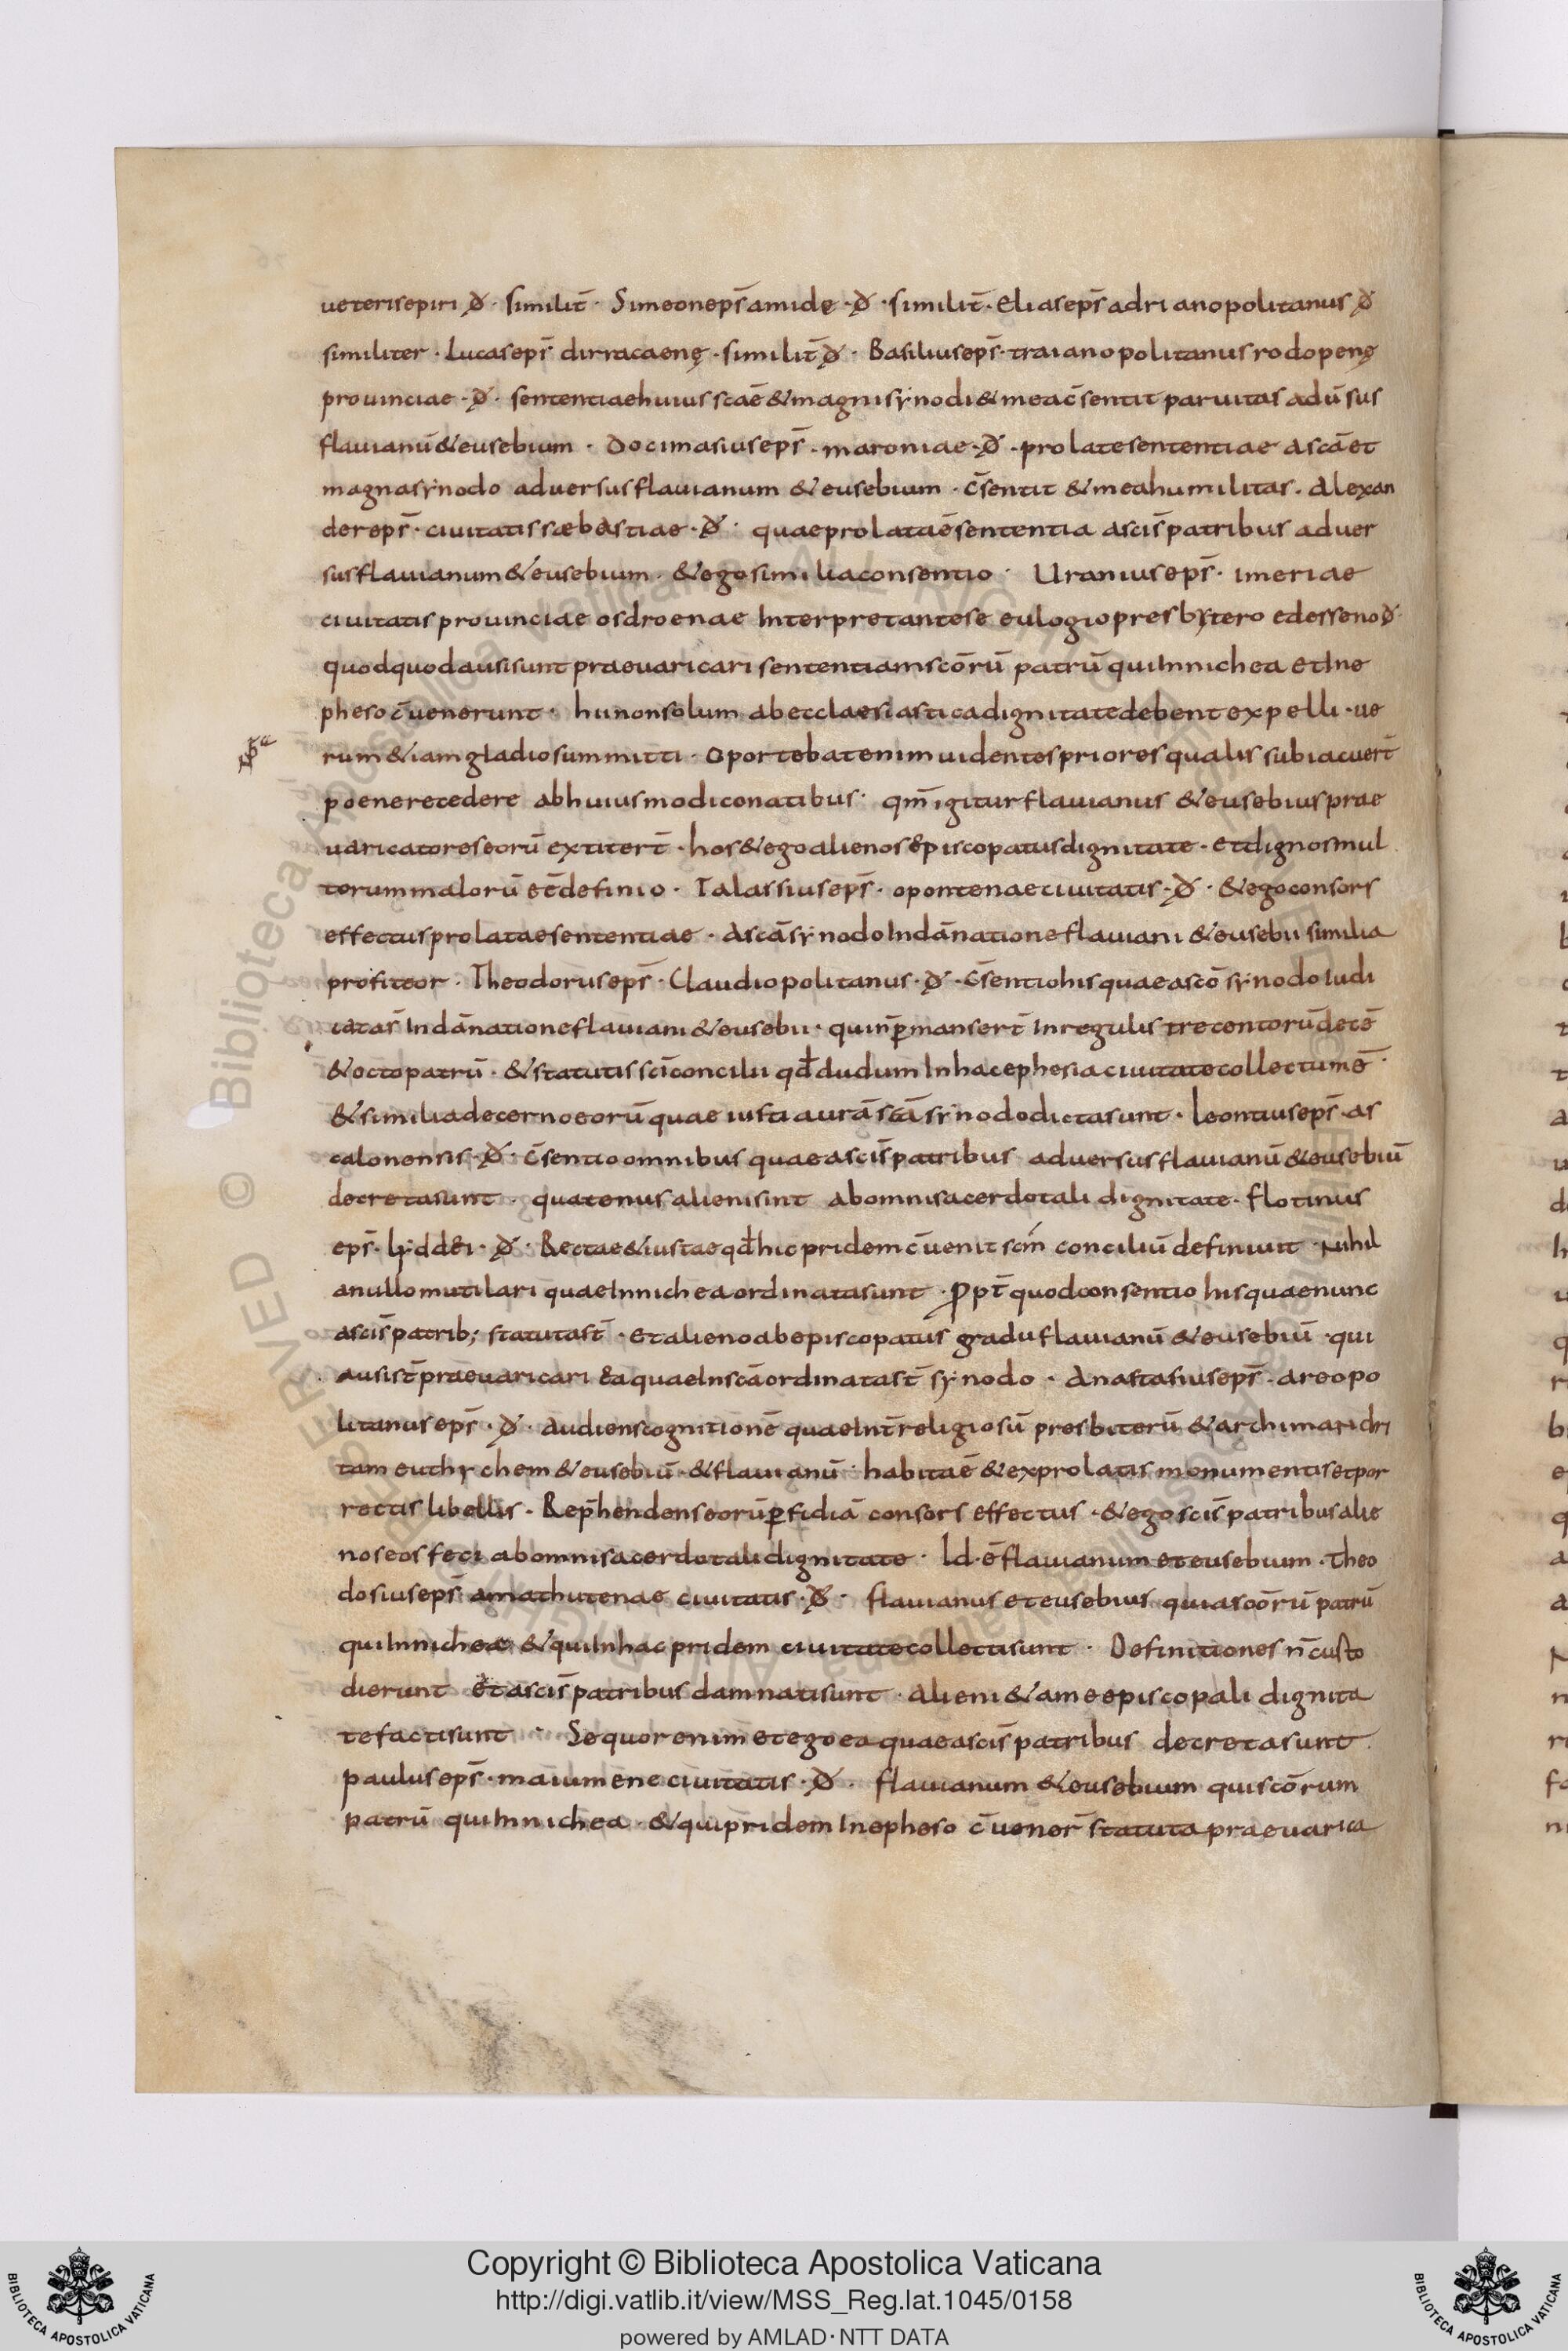 ueterisepiri ꝺ̸ · similit̄ · Simeonepī̄s amidę · ꝺ̸ · similit̄ · eliasep̄s adrianopolitanus ꝺ̸
similiter · Lucasep̄s dirracaenę · similit̄ ꝺ̸ · Basiliusep̄s · traianopolitanus rodopenę
prouinciae · ꝺ̸ · sententiaehuius scāe &magnisẏnodi&meac̄sentit paruitas adū̄sus
flauianū&eusebium · Docimasiusep̄s · maroniae · ꝺ̸ · prolatesententiae ascā et
magnasẏnodo aduersusflauianum &eusebium · c̄sentit &meahumilitas · Alexan
derep̄s · ciuitatis sæbastiae · ꝺ̸ · quaeprolataē sententia ascīs patribus aduer
susflauianum&eusebium · &egosimiliaconsentio · Uraniusep̄s · imeriae
ciuitatis prouinciae osdroenae Interpretantese eulogiopresbytero edesseno ꝺ̸
quodquodausisunt praeuaricari sententiamscōrū patrū quiInnichea etIne
pheso c̄uenerunt · hinonsolum abecclaesiasticadignitatedebentexpelli · ue
rum&iamgladiosummitti · oportebatenim uidentespriores qualis subiacuer̄t
poenerecedere abhuiusmodiconatibus · qm̄ igiturflauianus &eusebiusprae
uaricatoreseorū extiter̄t · hos&egoalienosepiscopatusdignitate · etdignosmul
torummalorū et̄definio · Talassiusep̄s · opontenaeciuitatis · ꝺ̸ · &egoconsors
effectusprolataesententiae · Ascā sẏnodoIndānationeflauiani &eusebii similia
profiteor · Theodorusep̄s · Claudiopolitanus · ꝺ̸ · c̄sentiohisquaeascō sẏnodoIudi
catas̄ Indānationeflauiani &eusebii · quinꝑmanser̄t Inregulis trecentorūdecē
&octopatrū · &statutis scī concilii qd̄dudumInhacephesiaciuitatecollectumē ·
&similiadecernoeorūquae iusti aurā scā sẏnododictasunt · leontiusep̄s · as
calonensis · ꝺ̸ · c̄sentioomnibus quaeascīs patribus aduersusflauianū&eusebiū
decretasunt · quatenusalienisint abomnisacerdotali dignitate · flotinus
ep̄s · lẏdd&i · ꝺ̸ · Rectae&iustaeqd̄hicpridemc̄uenit scm̄ conciliū definiuit · Nihil
anullomutilari quaeInnicheaordinatasunt · ꝓpt̄ quodconsentio hisquaenunc
ascīs patrib; statutas̄t · etalienoabepiscopatus graduflauianū &eusebiū · qui
ausis̄t praeuaricari eaquaeInscāordinatas̄t sẏnodo · Anastasiusep̄s · areopo
litanusep̄s · ꝺ̸ · Audienscognitionē quaeInt̄religiosū presbiterū &archimandri
tam euthẏchem &eusebiū · &flauianū · habitaē &exprolatis monumentisetpor
rectis libellis · Rep̄hendenseorūꝑfidiā consors effectus · &egoscīs patribusalie
noseosfeci abomnisacerdotalidignitate · Id · ē flauianum eteusebium · theo
dosiusep̄s amathutenae ciuitatis · ꝺ̸ · flauianus eteusebius quiascōrū patrū
quiInnichea &quiInhac pridem ciuitatecollectisunt · Definitiones n̄custo
dierunt et ascīs patribus damnatisunt · Alieni &ameepiscopali dignita
tefactisunt · Sequorenim etegoea quaeascīs patribus decretasunt
paulusep̄s · maiumeneciuitatis · ꝺ̸ · flauianum &eusebium quiscōrum
patrū quiInnichea · &quipridemInepheso c̄uener̄ statuta praeuarica
Copyright © Biblioteca Apostolica Vaticana
http://digi.vatlib.it/view/MSS_Reg.lat.1045/0158
powered by AMLAD · NTT DATA
BIBLIOTECA APOSTOLICA VATICANA
BIBLIOTECA APOSTOLICA VATICANA